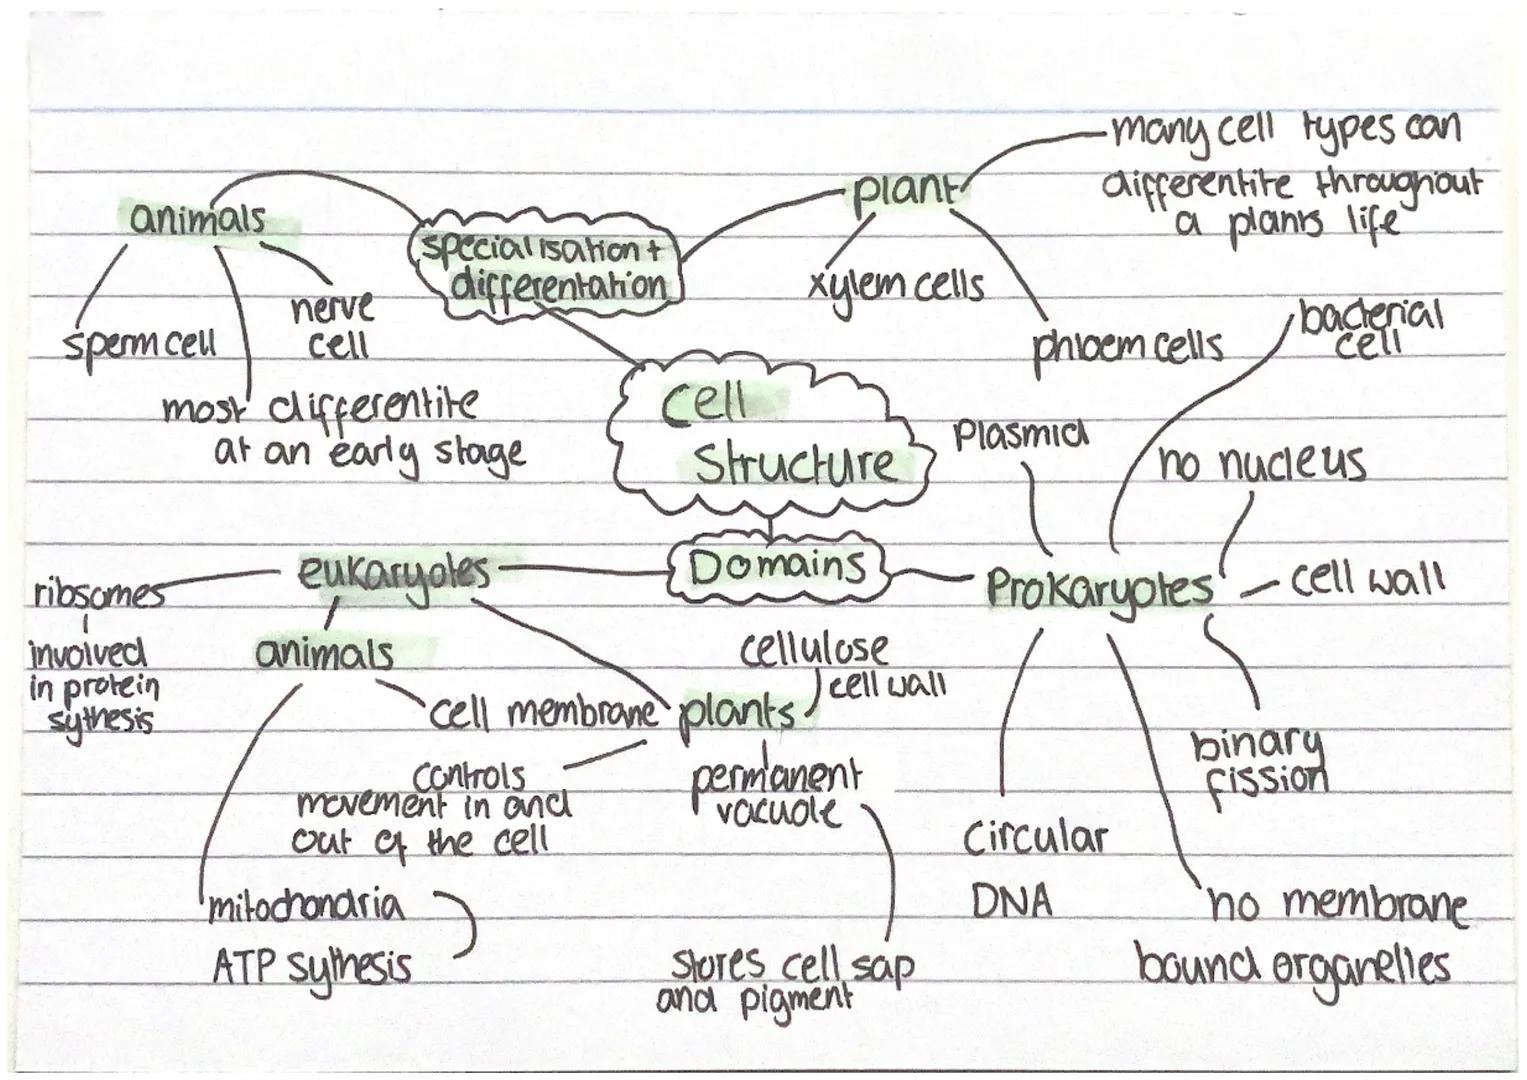 many cell types can
differentite throughout
a plants life
plant
animals
specialisation +
differentation
xylem cells
phloem cells
nerve
cell
sperm cell
most differentite
at an early stage
bacterial
cell
cell
structure
Plasmid
no nucleus
Domains
eukaryotes
ribsomes
involved
in protein
sythesis
Prokaryotes
cell wall
animals
cellulose
cell wall
cell membrane
plants
controls
movement in and
out of the cell
permanent
vacuole
stores cell sap
and pigment
mitochondria
ATP sythesis
binary
fission
circular
DNA
no membrane
bound organelles